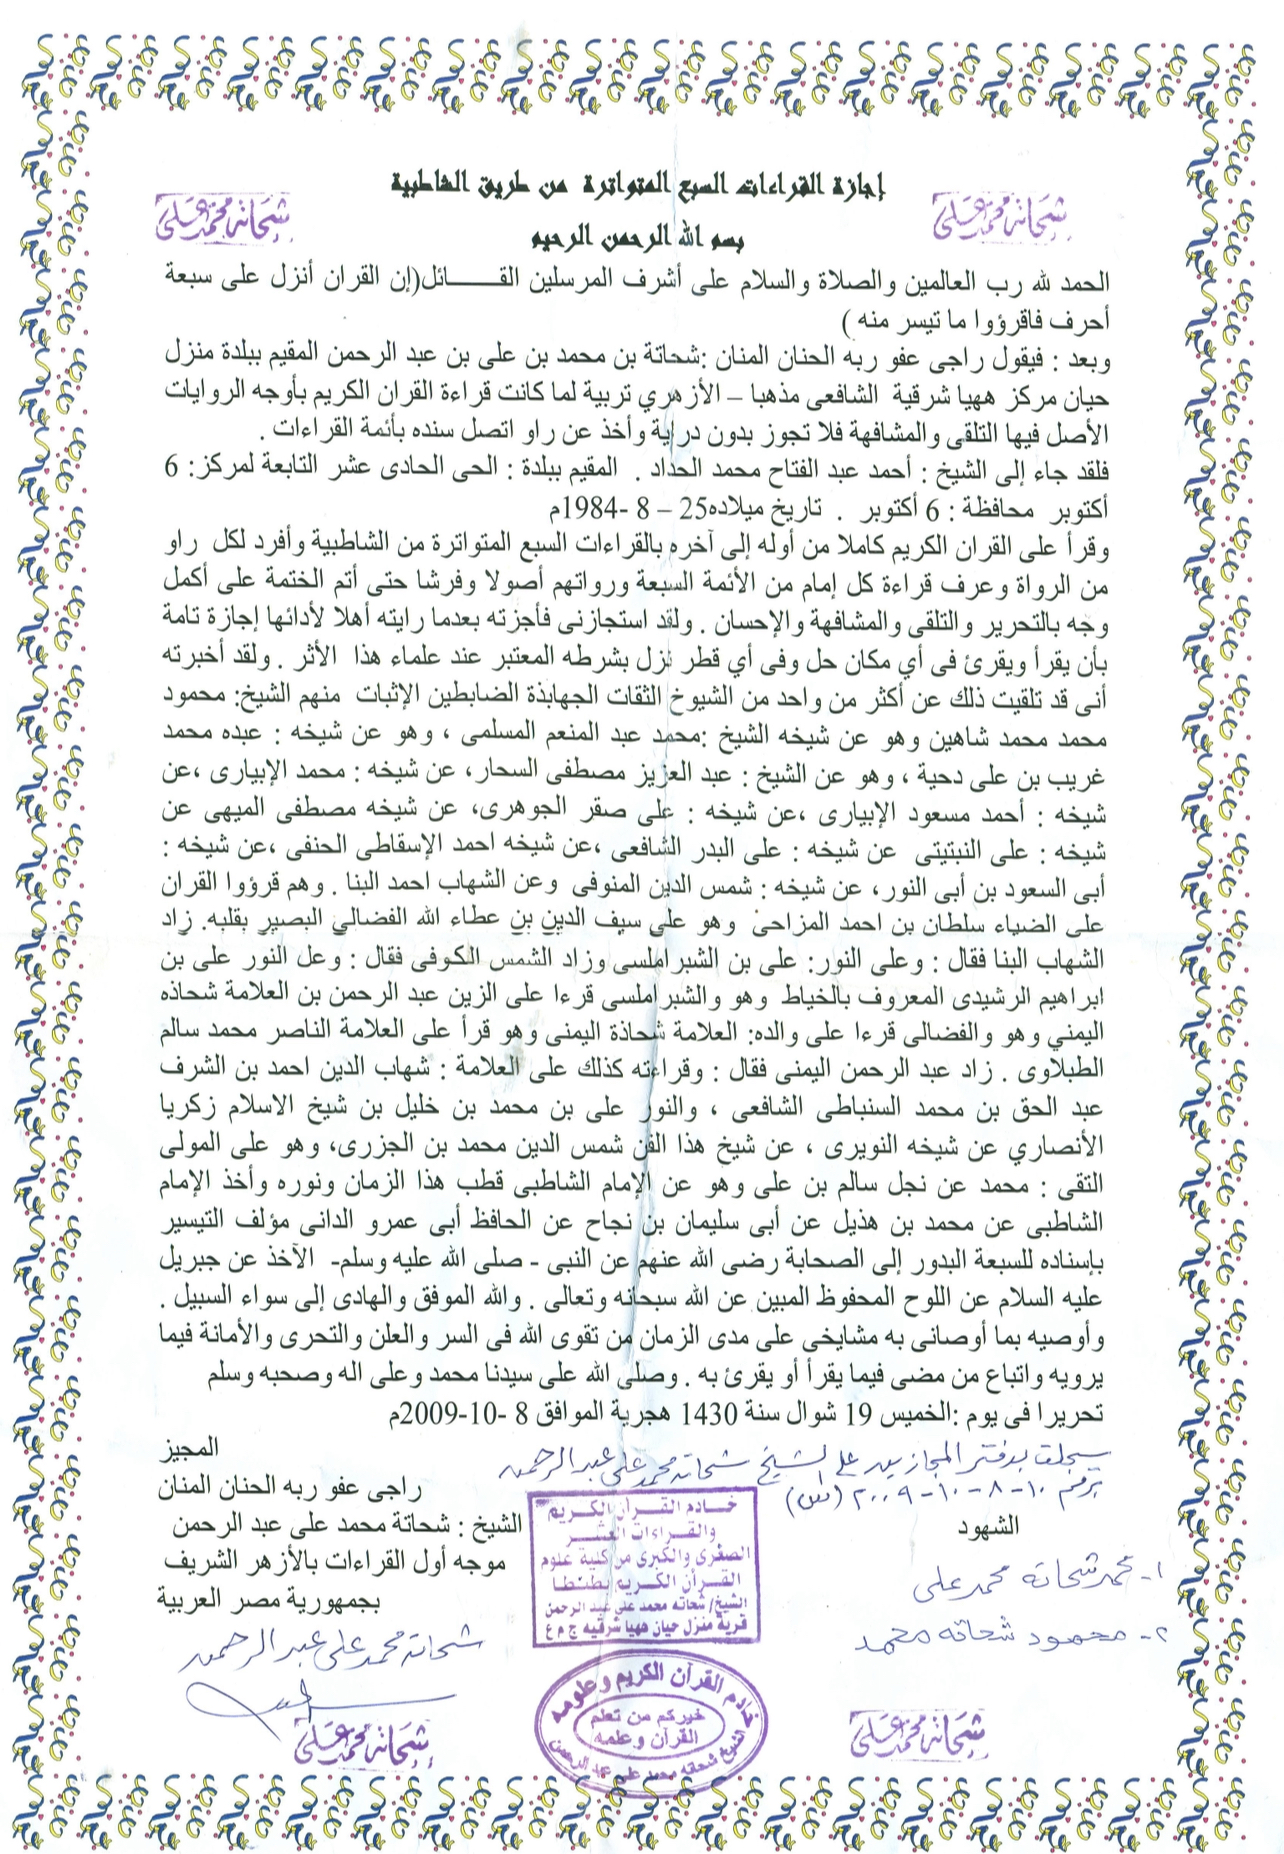 إجازة القراءات السبع المتواترة من طريق الشاطبية
شحاته محمد على
شحاته محمد على
بسم الله الرحمن الرحيم
الحمد لله رب العالمين والصلاة والسلام على أشرف المرسلين القـــــائل(إن القران أنزل على سبعة
أحرف فاقرؤوا ما تيسر منه )
وبعد : فيقول راجى عفو ربه الحنان المنان :شحاتة بن محمد بن على بن عبد الرحمن المقيم ببلدة منزل
حيان مركز ههيا شرقية الشافعى مذهبا – الأزهري تربية لما كانت قراءة القران الكريم بأوجه الروايات
الأصل فيها التلقى والمشافهة فلا تجوز بدون دراية وأخذ عن راو اتصل سنده بأئمة القراءات .
فلقد جاء إلى الشيخ : أحمد عبد الفتاح محمد الحداد . المقيم ببلدة : الحى الحادى عشر التابعة لمركز: 6
أكتوبر محافظة : 6 أكتوبر . تاريخ ميلاده25 – 8 -1984م
وقرأ على القران الكريم كاملا من أوله إلى آخره بالقراءات السبع المتواترة من الشاطبية وأفرد لكل راو
من الرواة وعرف قراءة كل إمام من الأئمة السبعة ورواتهم أصولا وفرشا حتى أتم الختمة على أكمل
وجه بالتحرير والتلقى والمشافهة والإحسان . ولقد استجازنى فأجزته بعدما رايته أهلا لأدائها إجازة تامة
بأن يقرأ ويقرئ فى أي مكان حل وفى أي قطر نزل بشرطه المعتبر عند علماء هذا الأثر . ولقد أخبرته
أنى قد تلقيت ذلك عن أكثر من واحد من الشيوخ الثقات الجهابذة الضابطين الإثبات منهم الشيخ: محمود
محمد محمد شاهين وهو عن شيخه الشيخ :محمد عبد المنعم المسلمى ، وهو عن شيخه : عبده محمد
غريب بن على دحية ، وهو عن الشيخ : عبد العزيز مصطفى السحار، عن شيخه : محمد الإبيارى ،عن
شيخه : أحمد مسعود الإبيارى ،عن شيخه : على صقر الجوهرى، عن شيخه مصطفى الميهى عن
شيخه : على النبتيتى عن شيخه : على البدر الشافعى ،عن شيخه احمد الإسقاطى الحنفى ،عن شيخه :
أبى السعود بن أبى النور، عن شيخه : شمس الدين المنوفى وعن الشهاب احمد البنا . وهم قرؤوا القران
على الضياء سلطان بن احمد المزاحى وهو على سيف الدين بن عطاء الله الفضالي البصير بقلبه. زاد
الشهاب البنا فقال : وعلى النور: على بن الشبراملسى وزاد الشمس الكوفى فقال : وعل النور على بن
ابراهيم الرشيدى المعروف بالخياط وهو والشبراملسى قرءا على الزين عبد الرحمن بن العلامة شحاذه
اليمني وهو والفضالى قرءا على والده: العلامة شحاذة اليمنى وهو قرأ على العلامة الناصر محمد سالم
الطبلاوى . زاد عبد الرحمن اليمنى فقال : وقراءته كذلك على العلامة : شهاب الدين احمد بن الشرف
عبد الحق بن محمد السنباطى الشافعى ، والنور على بن محمد بن خليل بن شيخ الاسلام زكريا
الأنصاري عن شيخه النويرى ، عن شيخ هذا الفن شمس الدين محمد بن الجزرى، وهو على المولى
التقى : محمد عن نجل سالم بن على وهو عن الإمام الشاطبى قطب هذا الزمان ونوره وأخذ الإمام
الشاطبى عن محمد بن هذيل عن أبى سليمان بن نجاح عن الحافظ أبى عمرو الدانى مؤلف التيسير
بإسناده للسبعة البدور إلى الصحابة رضى الله عنهم عن النبى - صلى الله عليه وسلم- الآخذ عن جبريل
عليه السلام عن اللوح المحفوظ المبين عن الله سبحانه وتعالى . والله الموفق والهادى إلى سواء السبيل .
وأوصيه بما أوصانى به مشايخى على مدى الزمان من تقوى الله فى السر والعلن والتحرى والأمانة فيما
يرويه واتباع من مضى فيما يقرأ أو يقرئ به . وصلى الله على سيدنا محمد وعلى اله وصحبه وسلم
تحريرا فى يوم :الخميس 19 شوال سنة 1430 هجرية الموافق 8 -10-2009م
سجلت بدفتر المجازين على الشيخ شحاته محمد على عبد الرحمن
برقم ١٠-٨-١٠-٢٠٠٩ (س)
المجيز
راجى عفو ربه الحنان المنان
الشيخ : شحاتة محمد على عبد الرحمن
موجه أول القراءات بالأزهر الشريف
بجمهورية مصر العربية
شحاته محمد على عبد الرحمن
خادم القرآن الكريم
والقراءات العشر
الصغرى والكبرى من كلية علوم
القرآن الكريم بطنطا
الشيخ/ شحاته محمد على عبد الرحمن
قرية منزل حيان ههيا شرقيه ج م ع
الشهود
١- محمد شحاته محمد على
٢- محمود شحاته محمد
خادم القرآن الكريم وعلومه
خيركم من تعلم
القرآن وعلمه
الشيخ شحاته محمد على عبد الرحمن
شحاته محمد على
شحاته محمد على